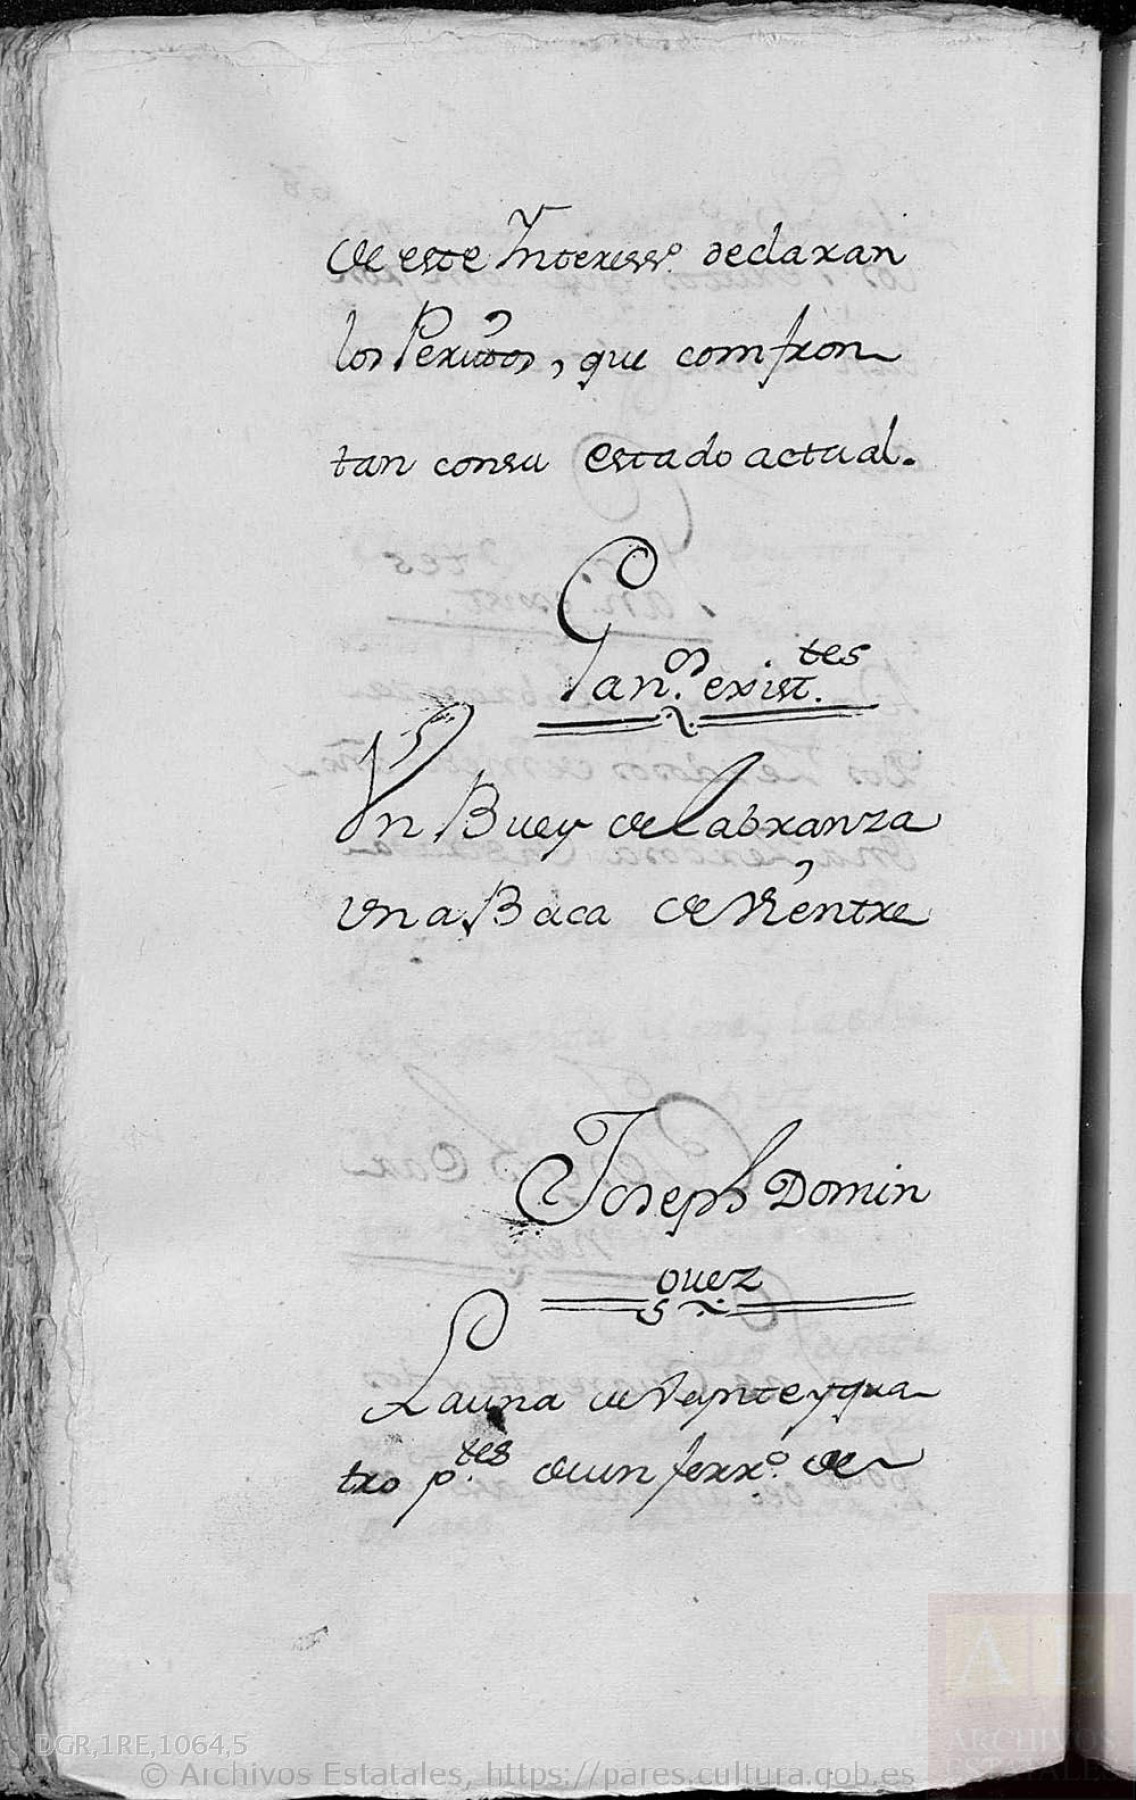 de este Ynteress.º declaran
los Peritos, que comfron
tan consu estado actual.
Gan.ᵒˢ exist.ᵗᵉˢ
Vn Buey de Labranza
vna Baca de Vientre
Joseph Domin
guez
La una de Veynte y qua
tro p.ᵗᵉˢ de un ferr.º de
DGR,1RE,1064,5
© Archivos Estatales, https://pares.cultura.gob.es
AE
ARCHIVOS
ESTATALES